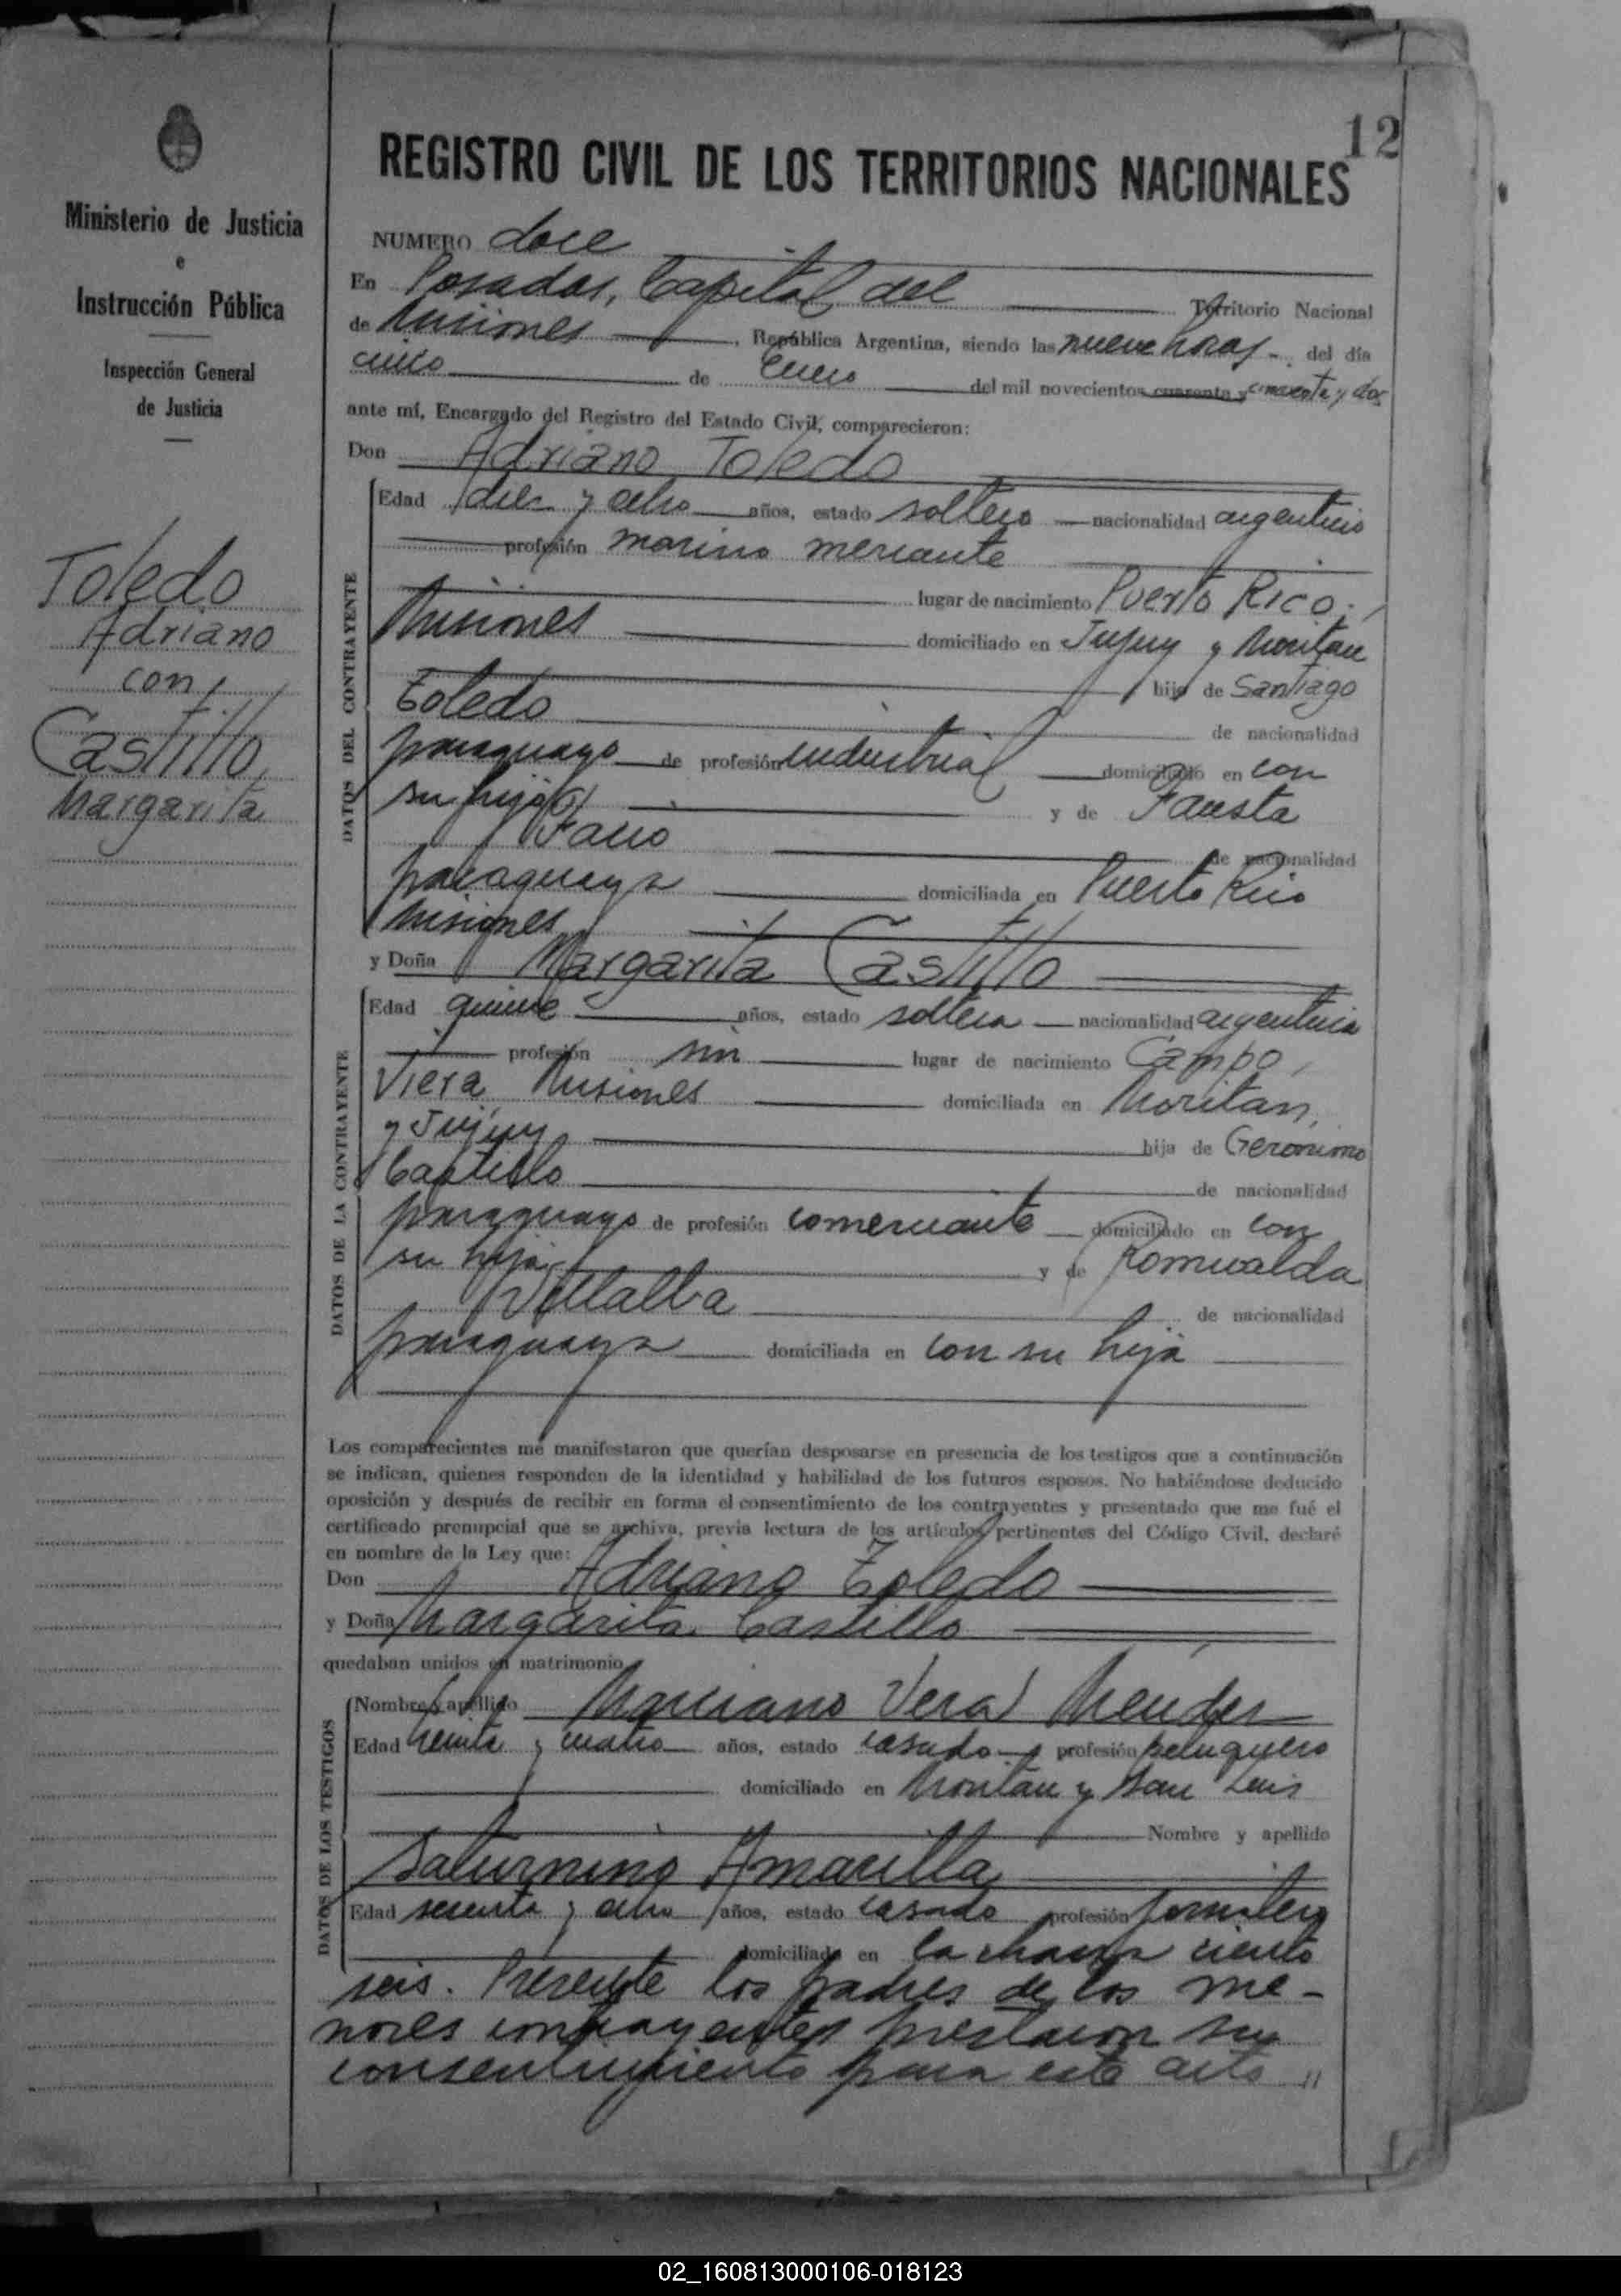 12
Ministerio de Justicia
e
Instrucción Pública
Inspección General
de Justicia
Toledo
Adriano
con
Castillo
Margarita
REGISTRO CIVIL DE LOS TERRITORIOS NACIONALES
NUMERO doce
En Posadas, Capital del Territorio Nacional
de Misiones, República Argentina, siendo las nueve horas - del día
cinco de Enero del mil novecientos cuarenta y cincuenta y dos
ante mí, Encargado del Registro del Estado Civil, comparecieron:
Don Adriano Toledo
DATOS DEL CONTRAYENTE
Edad diez y ocho años, estado soltero nacionalidad argentino
profesión marino mercante
lugar de nacimiento Puerto Rico,
Misiones domiciliado en Jujuy y Moritan
hijo de Santiago
Toledo de nacionalidad
paraguayo de profesión industrial domiciliado en con
su hijo y de Fausta
de nacionalidad
paraguaya domiciliada en Puerto Rico
Misiones
y Doña Margarita Castillo
DATOS DE LA CONTRAYENTE
Edad quince años, estado soltera nacionalidad argentina
profesión sin lugar de nacimiento Campo
Viera Misiones domiciliada en Moritan,
y Jujuy hija de Geronimo
Castillo de nacionalidad
paraguayo de profesión comerciante domiciliado en con
su hija y de Romualda
Villalba de nacionalidad
paraguaya domiciliada en con su hija
Los comparecientes me manifestaron que querían desposarse en presencia de los testigos que a continuación
se indican, quienes responden de la identidad y habilidad de los futuros esposos. No habiéndose deducido
oposición y después de recibir en forma el consentimiento de los contrayentes y presentado que me fué el
certificado prenupcial que se archiva, previa lectura de los artículos pertinentes del Código Civil, declaré
en nombre de la Ley que:
Don Adriano Toledo
y Doña Margarita Castillo
quedaban unidos en matrimonio
DATOS DE LOS TESTIGOS
Nombre y apellido Marciano Vera Mendez
Edad treinta y cuatro años, estado casado profesión peluquero
domiciliado en Moritan y San Luis
Nombre y apellido
Saturnino Amarilla
Edad sesenta y ocho años, estado casado profesión jornalero
domiciliado en la chacra ciento
seis. Presente los padres de los me-
nores contrayentes prestaron su
consentimiento para este acto //
02_160813000106-018123